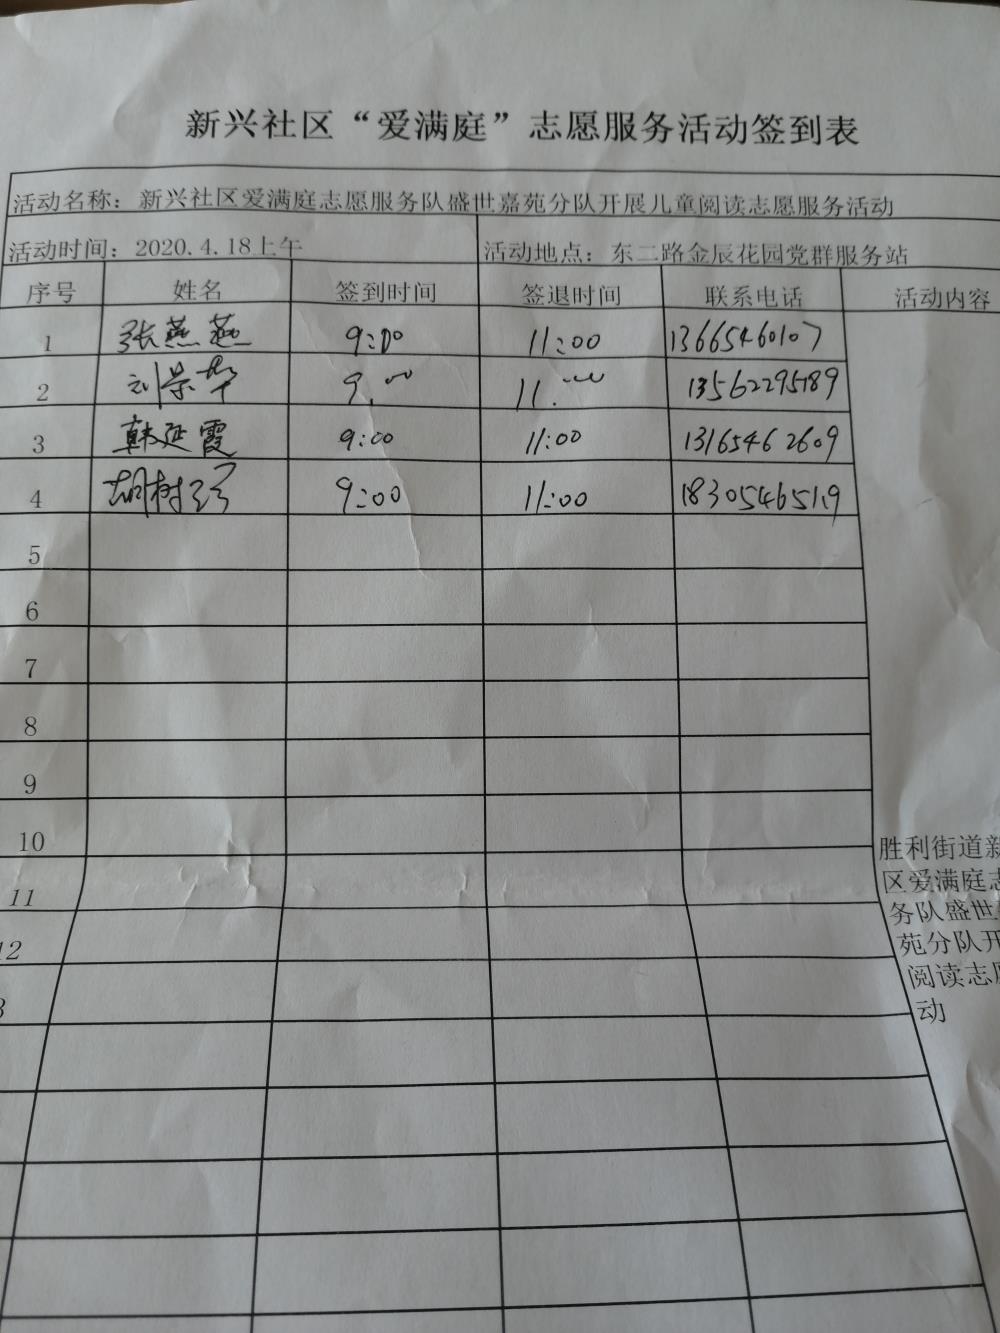 新兴社区“爱满庭”志愿服务活动签到表
活动名称：新兴社区爱满庭志愿服务队盛世嘉苑分队开展儿童阅读志愿服务活动
活动时间：2020.4.18上午 活动地点：东二路金辰花园党群服务站
序号 姓名 签到时间 签退时间 联系电话 活动内容
1 张燕燕 9:00 11:00 13665460107
2 刘荣华 9:00 11:00 13562295189
3 韩延霞 9:00 11:00 13165462609
4 胡树 9:00 11:00 18305465119
5
6
7
8
9
10
11
12
胜利街道新
区爱满庭志
务队盛世
苑分队开
阅读志愿
动